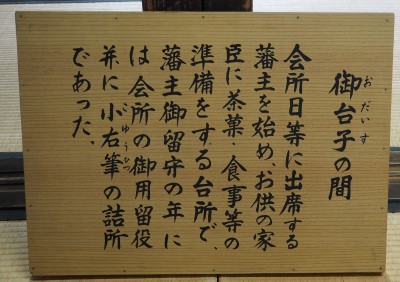 御台子の間
おだいす
会所日等に出席する
藩主を始め、お供の家
臣に茶菓・食事等の
準備をする台所で、
藩主御留守の年に
は会所の御用留役
并に小右筆の詰所
こゆうひつ
であった。